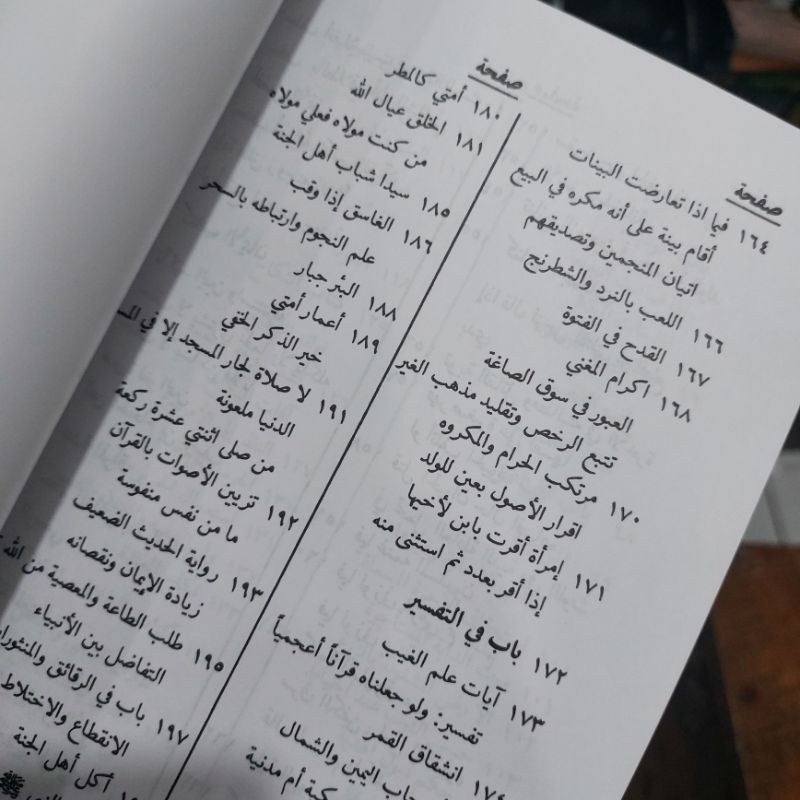 صفحة
١٦٤ فيما اذا تعارضت البينات
أقام بينة على أنه مكره في البيع
اتيان المنجمين وتصديقهم
١٦٦ اللعب بالنرد والشطرنج
١٦٧ القدح في الفتوة
١٦٨ اكرام المغني
العبور في سوق الصاغة
تتبع الرخص وتقليد مذهب الغير
١٧٠ مرتكب الحرام والمكروه
اقرار الأصول بعين للولد
١٧١ إمرأة أقرت بابن لأخيها
إذا أقر بعدد ثم استثنى منه
١٧٢ باب في التفسير
١٧٣ آيات علم الغيب
تفسير: ولو جعلناه قرآناً أعجمياً
١٧٤ انشقاق القمر
اليمين والشمال
أم مدنية
صفحة
١٨٠ أمتي كالمطر
١٨١ الخلق عيال الله
من كنت مولاه فعلي مولاه
١٨٥ سيدا شباب أهل الجنة
١٨٦ الغاسق إذا وقب
علم النجوم وارتباطه بالسحر
١٨٨ البئر جبار
١٨٩ أعمار أمتي
خير الذكر الخفي
١٩١ لا صلاة لجار المسجد إلا في
الدنيا ملعونة
من صلى اثنتي عشرة ركعة
١٩٢ تزيين الأصوات بالقرآن
ما من نفس منفوسة
١٩٣ رواية الحديث الضعيف
زيادة الإيمان ونقصانه
١٩٥ طلب الطاعة والمعصية من الله
التفاضل بين الأنبياء
١٩٧ باب في الرقائق
الانقطاع والاختلاط
أكل أهل الجنة
ﷺ